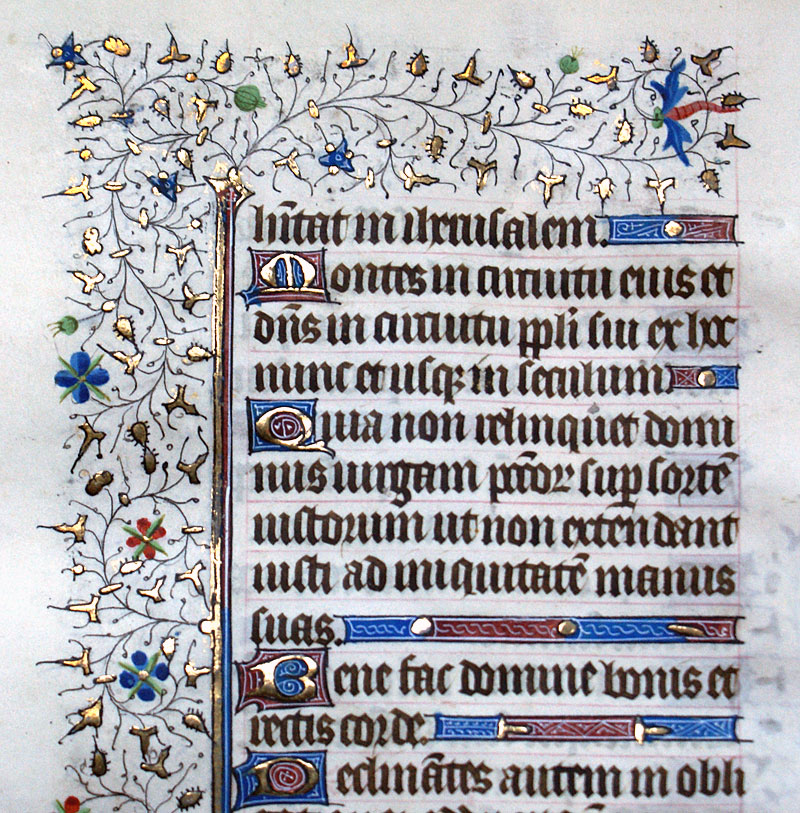 hītat in iherusalem.
Montes in circuitu eius et
dn̄s in circuitu ppli sui ex hoc
nunc et usq; in seculum.
Quia non relinquet domi
nus uirgam pcc̄or sup sortē
iustorum ut non extendant
iusti ad iniquitatē manus
suas.
Bene fac domine bonis et
rectis corde.
Declinātes autem in obli